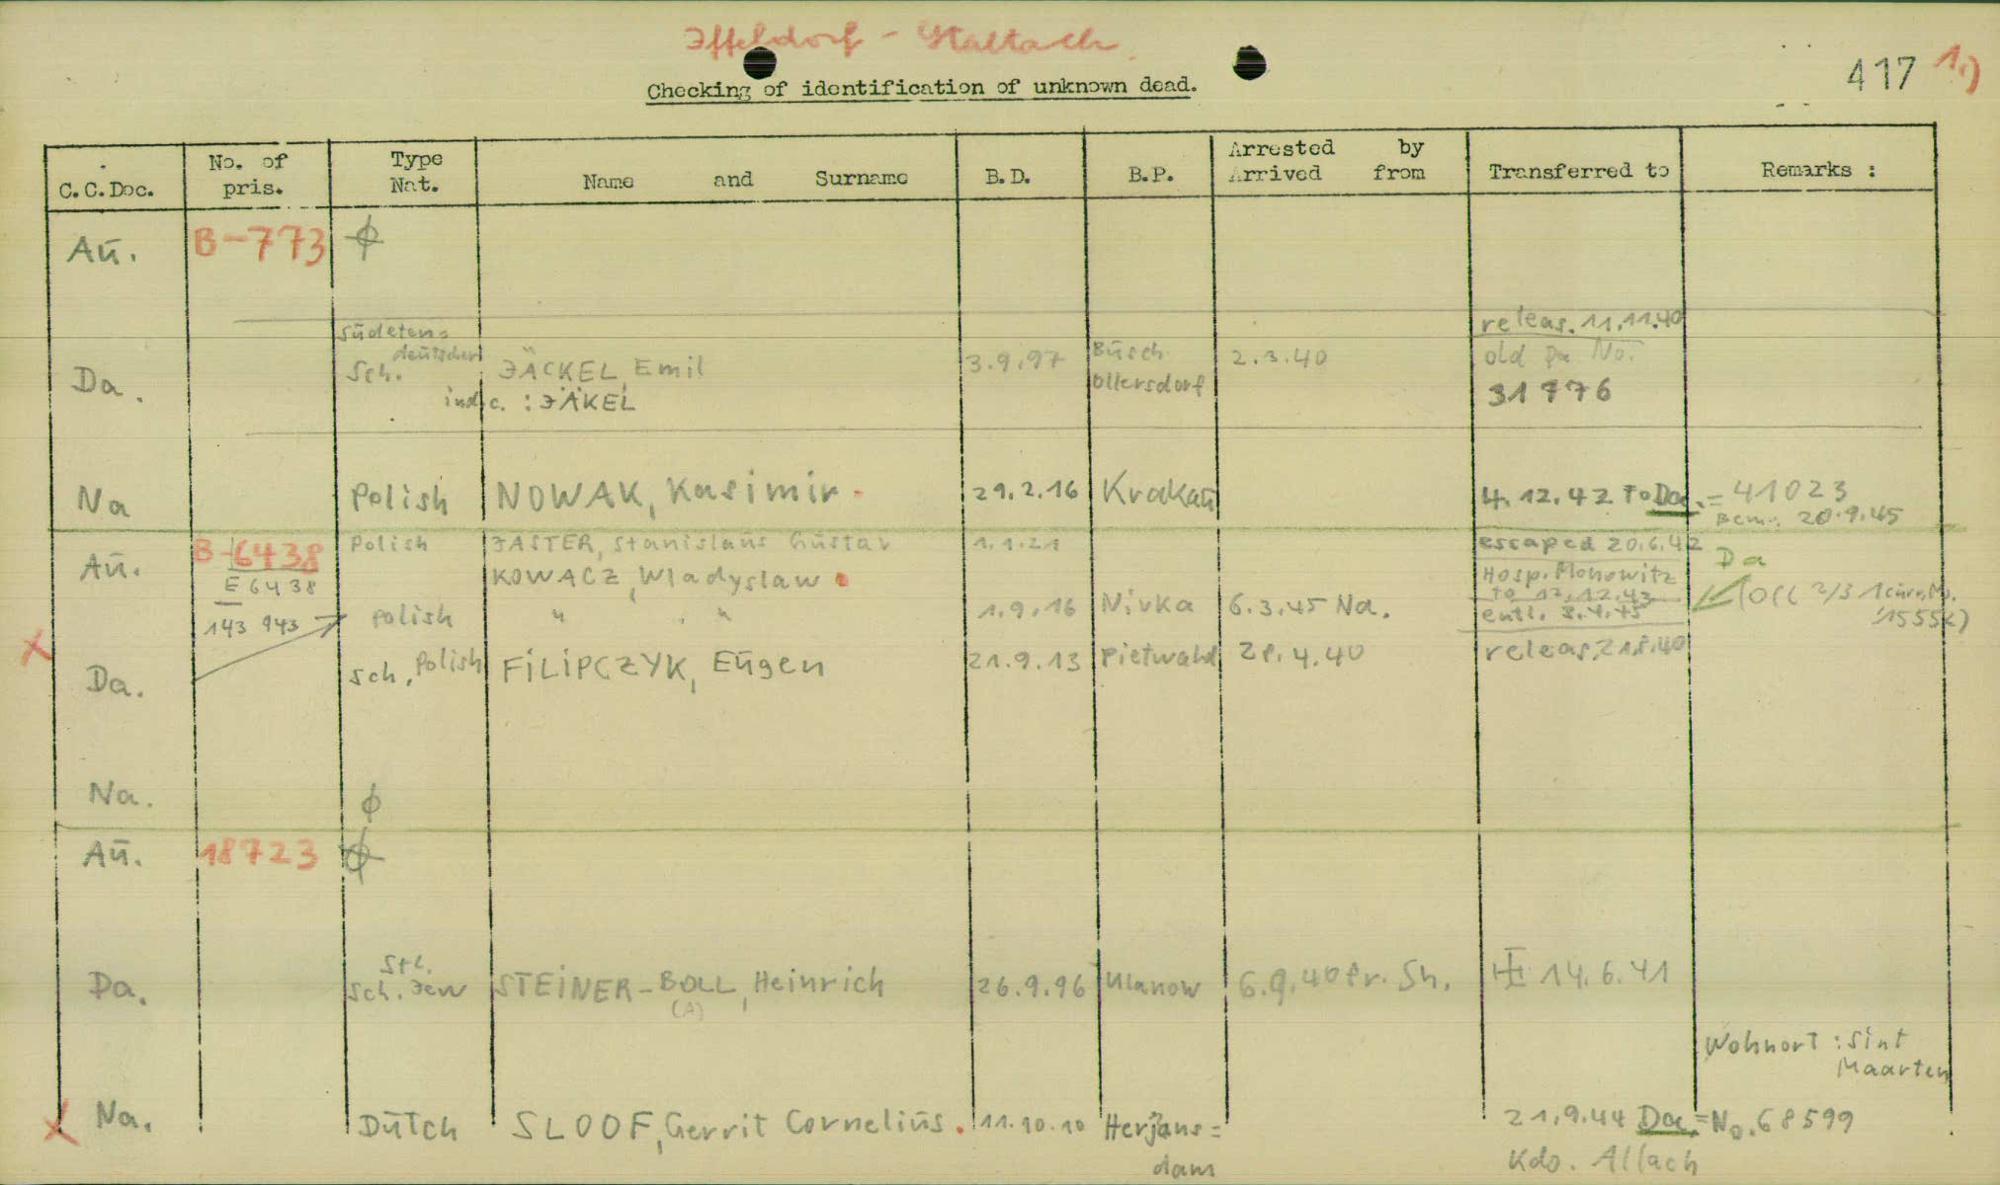 Iffeldorf - Staltach
417 1.)
Checking of identification of unknown dead.
C.C.Doc. No. of pris. Type Nat. Name and Surname B.D. B.P. Arrested by Arrived from Transferred to Remarks :
Aū. B-773 ϕ
releas. 11.11.40
Sūdeten=
deūtscher
Da. Sch. JÄCKEL, Emil 3.9.97 Būsch ollersdorf 2.3.40 old Da No.
indic. : JÄKEL 31776
Na Polish NOWAK, Kasimir. 29.2.16 Krakaū 4.12.42 To Da. = 41023
Bem. 20.9.45
Aū. B-6438 Polish JASTER, Stanislaūs Gūstav 1.1.21 escaped 20.6.42
E 6438 KOWACZ, Wladyslaw Hosp. Monowitz Da
to 17.12.43
143 943 Polish " " 1.9.16 Nivka 6.3.45 Na. entl. 3.4.45 (OCC 2/3
X Da. Sch. Polish FiLiPCZYK, Eūgen 21.9.13 Pietwald 28.4.40 releas. 21.8.40
Na. ϕ
Aū. 18723 ϕ
Da. Stl. Sch. Jew STEiNER-BOLL, Heinrich 26.9.96 Ulanow 6.9.40 fr. Sh. 14.6.41
(A)
Wohnort : Sint
Maarten
X Na. Dūtch SLOOF, Gerrit Cornelius. 11.10.10 Herjans= 21.9.44 Da. = No. 68599
dam Kdo. Allach